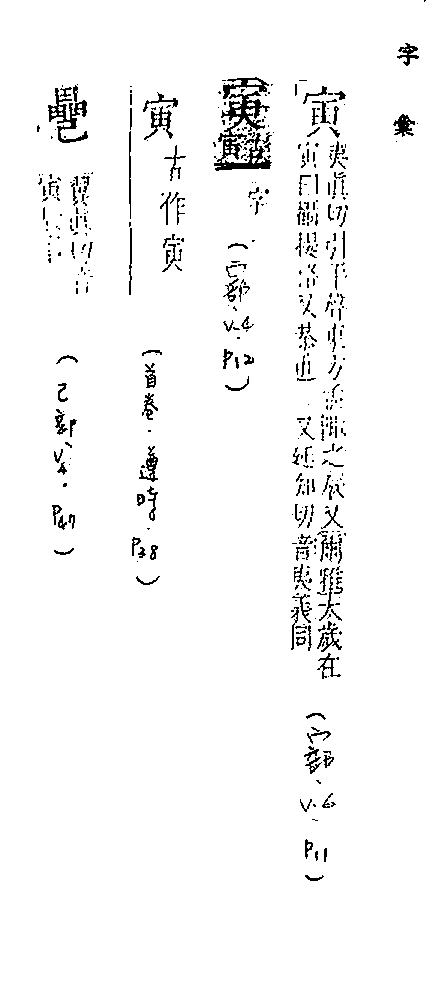 字彙
寅
夷真切引平聲東方孟陬之辰又爾雅太歲在
寅曰攝提格又恭也 又延知切音夷義同
(宀部.V.6.P11)
寅 古
寅 字
(宀部.V.4.P12)
寅 古作寅
(首卷.遵時.P38)
翼真切音
寅
(己部.V.4.P47)